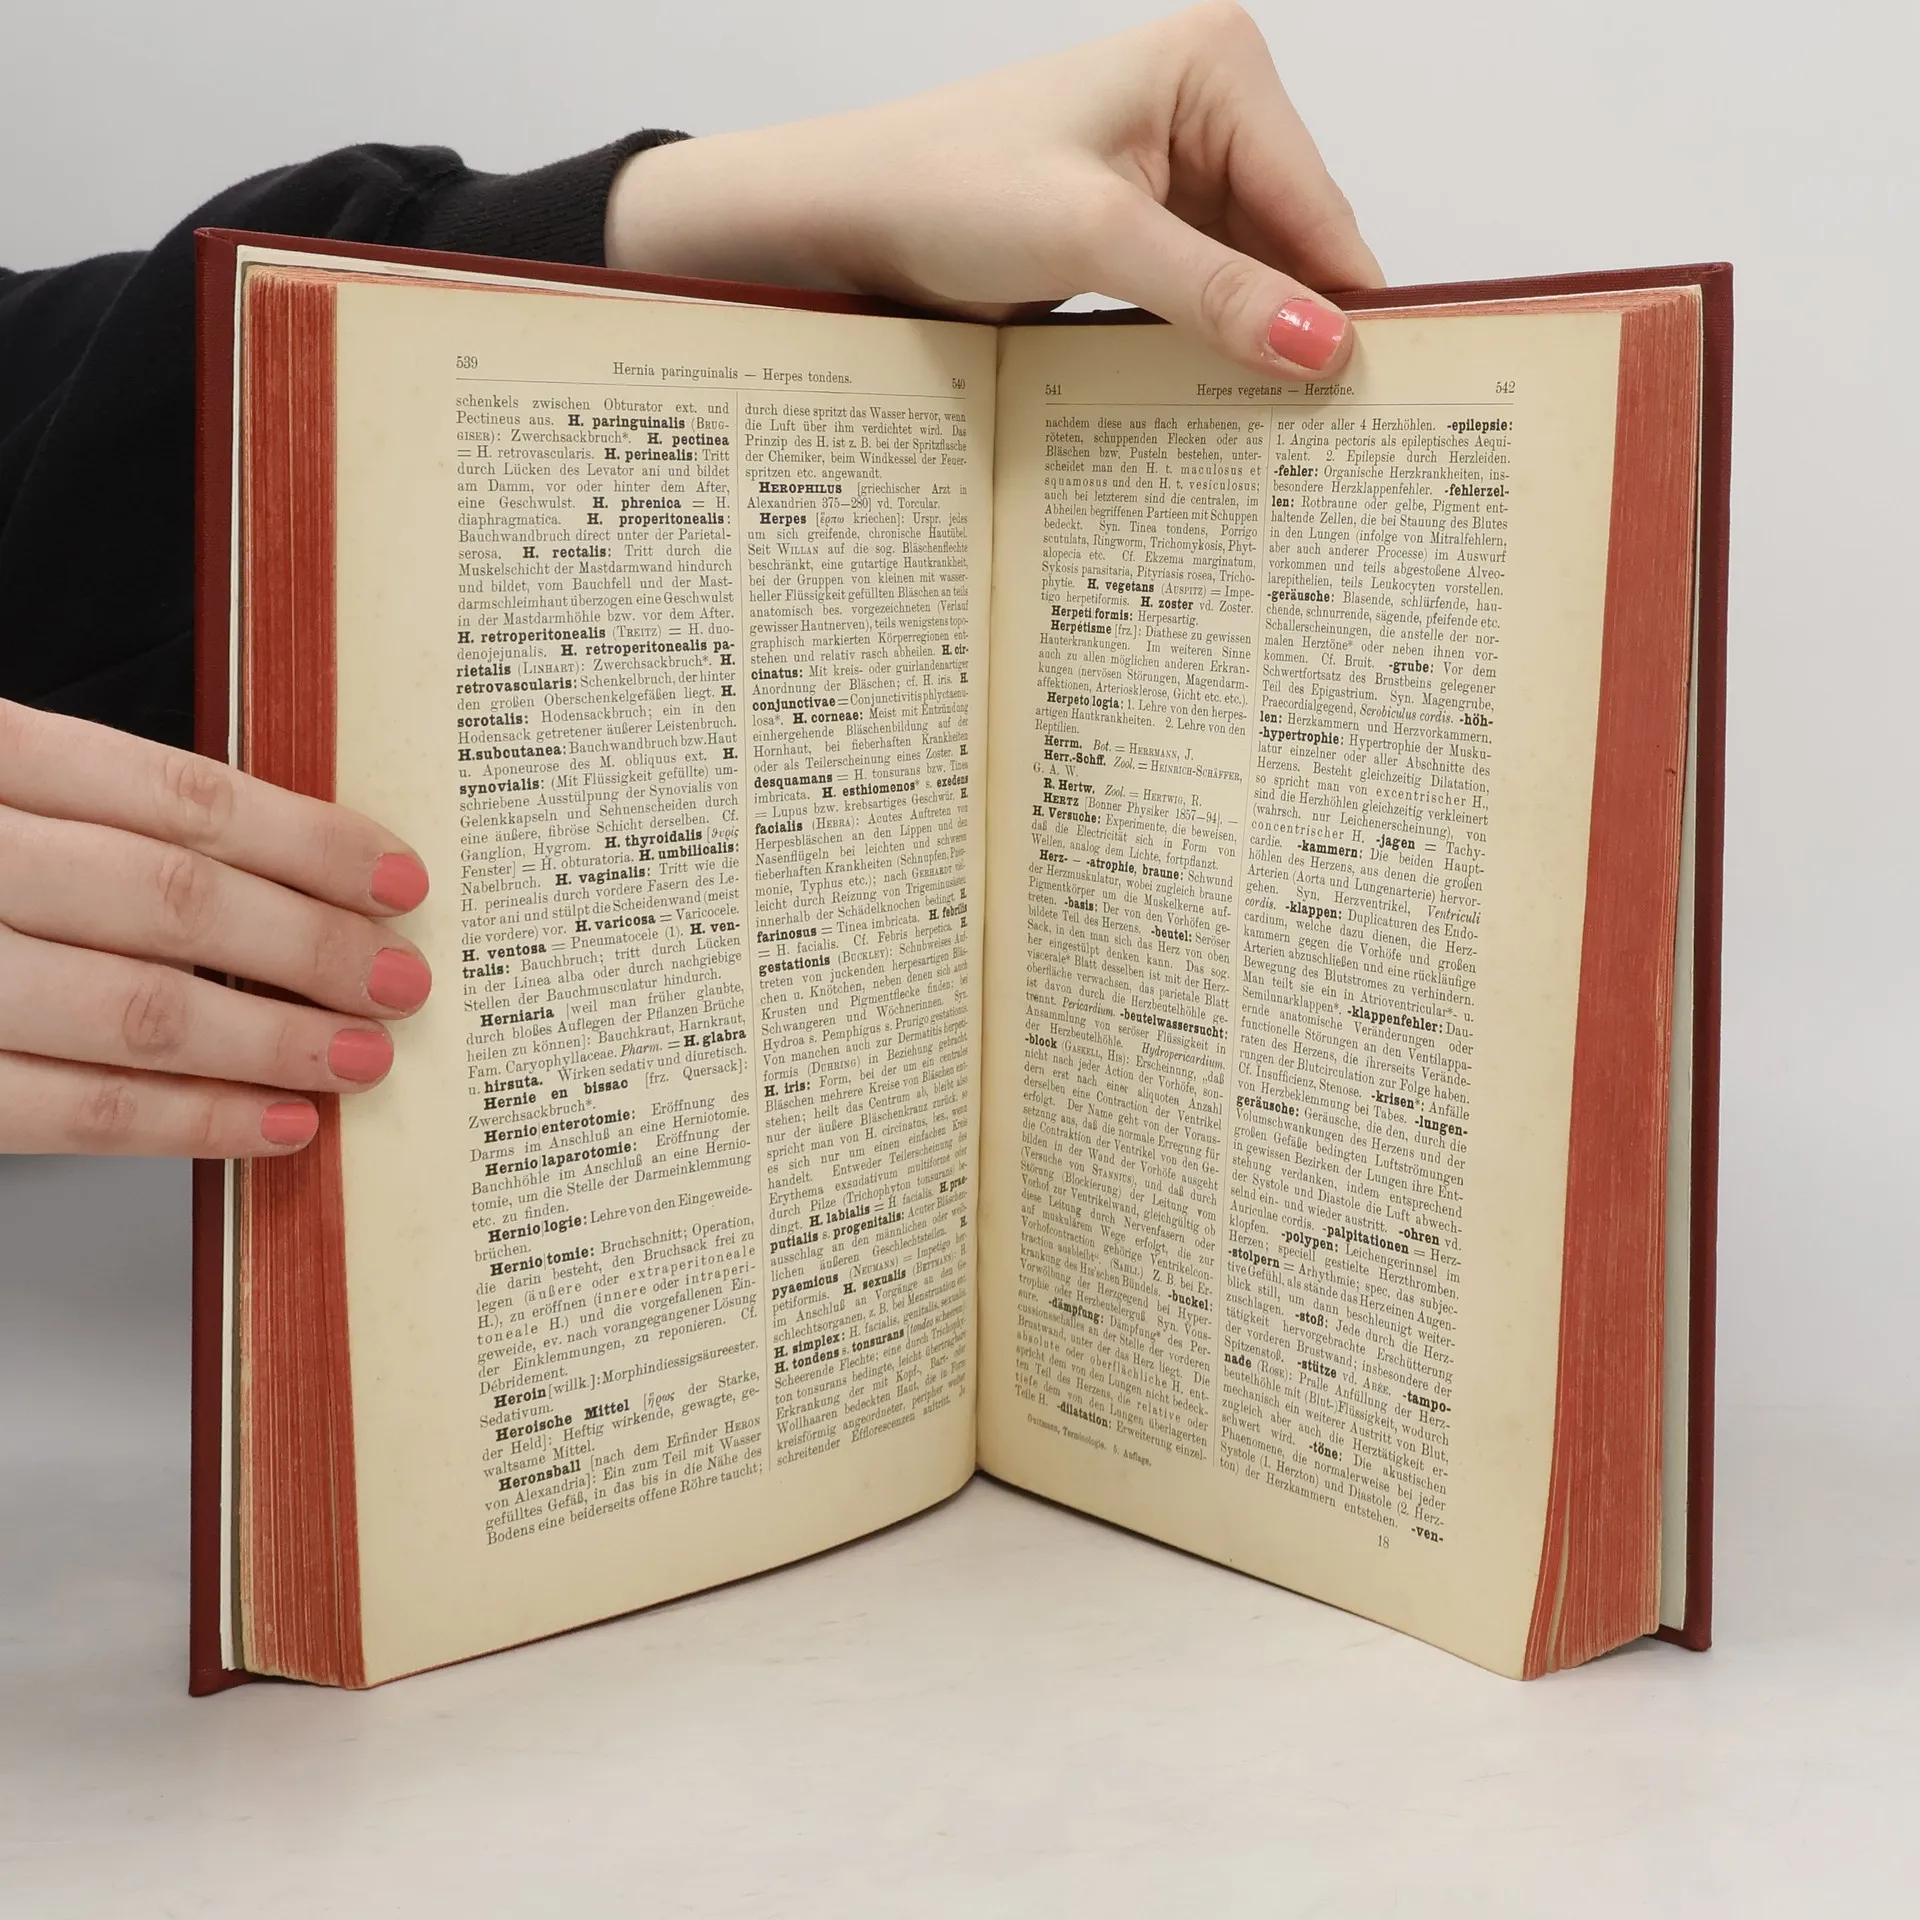 539
Hernia paringuinalis — Herpes tondens.
540
schenkels zwischen Obturator ext. und
Pectineus aus. H. paringuinalis (BRUG-
GISER): Zwerchsackbruch*. H. pectinea
= H. retrovascularis. H. perinealis: Tritt
durch Lücken des Levator ani und bildet
am Damm, vor oder hinter dem After,
eine Geschwulst. H. phrenica = H.
diaphragmatica. H. properitonealis:
Bauchwandbruch direct unter der Parietal-
serosa. H. rectalis: Tritt durch die
Muskelschicht der Mastdarmwand hindurch
und bildet, vom Bauchfell und der Mast-
darmschleimhaut überzogen eine Geschwulst
in der Mastdarmhöhle bzw. vor dem After.
H. retroperitonealis (TREITZ) = H. duo-
denojejunalis. H. retroperitonealis pa-
rietalis (LINHART): Zwerchsackbruch*. H.
retrovascularis: Schenkelbruch, der hinter
den großen Oberschenkelgefäßen liegt. H.
scrotalis: Hodensackbruch; ein in den
Hodensack getretener äußerer Leistenbruch.
H. subcutanea: Bauchwandbruch bzw. Haut
u. Aponeurose des M. obliquus ext. H.
synovialis: (Mit Flüssigkeit gefüllte) um-
schriebene Ausstülpung der Synovialis von
Gelenkkapseln und Sehnenscheiden durch
eine äußere, fibröse Schicht derselben. Cf.
Ganglion, Hygrom. H. thyroidalis [θυρίς
Fenster] = H. obturatoria. H. umbilicalis:
Nabelbruch. H. vaginalis: Tritt wie die
H. perinealis durch vordere Fasern des Le-
vator ani und stülpt die Scheidenwand (meist
die vordere) vor. H. varicosa = Varicocele.
H. ventosa = Pneumatocele (1). H. ven-
tralis: Bauchbruch; tritt durch Lücken
in der Linea alba oder durch nachgiebige
Stellen der Bauchmusculatur hindurch.
Herniaria [weil man früher glaubte,
durch bloßes Auflegen der Pflanzen Brüche
heilen zu können]: Bauchkraut, Harnkraut,
Fam. Caryophyllaceae. Pharm. = H. glabra
u. hirsuta. Wirken sedativ und diuretisch.
Hernie en bissac [frz. Quersack]:
Zwerchsackbruch*.
Hernio|enterotomie: Eröffnung des
Darms im Anschluß an eine Herniotomie.
Hernio|laparotomie: Eröffnung der
Bauchhöhle im Anschluß an eine Hernio-
tomie, um die Stelle der Darmeinklemmung
etc. zu finden.
Hernio|logie: Lehre von den Eingeweide-
brüchen.
Hernio|tomie: Bruchschnitt; Operation,
die darin besteht, den Bruchsack frei zu
legen (äußere oder extraperitoneale
H.), zu eröffnen (innere oder intraperi-
toneale H.) und die vorgefallenen Ein-
geweide, ev. nach vorangegangener Lösung
der Einklemmungen, zu reponieren. Cf.
Débridement.
Heroin [willk.]: Morphindiessigsäureester.
Sedativum.
Heroische Mittel [ἥρως der Starke,
der Held]: Heftig wirkende, gewagte, ge-
waltsame Mittel.
Heronsball [nach dem Erfinder HERON
von Alexandria]: Ein zum Teil mit Wasser
gefülltes Gefäß, in das bis in die Nähe des
Bodens eine beiderseits offene Röhre taucht;
durch diese spritzt das Wasser hervor, wenn
die Luft über ihm verdichtet wird. Das
Prinzip des H. ist z. B. bei der Spritzflasche
der Chemiker, beim Windkessel der Feuer-
spritzen etc. angewandt.
HEROPHILUS [griechischer Arzt in
Alexandrien 375—280] vd. Torcular.
Herpes [ἕρπω kriechen]: Urspr. jedes
um sich greifende, chronische Hautübel.
Seit WILLAN auf die sog. Bläschenflechte
beschränkt, eine gutartige Hautkrankheit,
bei der Gruppen von kleinen mit wasser-
heller Flüssigkeit gefüllten Bläschen an teils
anatomisch bes. vorgezeichneten (Verlauf
gewisser Hautnerven), teils wenigstens topo-
graphisch markierten Körperregionen ent-
stehen und relativ rasch abheilen. H. cir-
cinatus: Mit kreis- oder guirlandenartiger
Anordnung der Bläschen; cf. H. iris. H.
conjunctivae = Conjunctivitis phlyctaenu-
losa*. H. corneae: Meist mit Entzündung
einhergehende Bläschenbildung auf der
Hornhaut, bei fieberhaften Krankheiten
oder als Teilerscheinung eines Zoster. H.
desquamans = H. tonsurans bzw. Tinea
imbricata. H. esthiomenos* s. exedens
= Lupus bzw. krebsartiges Geschwür. H.
facialis (HEBRA): Acutes Auftreten von
Herpesbläschen an den Lippen und den
Nasenflügeln bei leichten und schweren
fieberhaften Krankheiten (Schnupfen, Pneu-
monie, Typhus etc.); nach GERHARDT viel-
leicht durch Reizung von Trigeminusästen
innerhalb der Schädelknochen bedingt. H.
farinosus = Tinea imbricata. H. febrilis
= H. facialis. Cf. Febris herpetica. H.
gestationis (BUCKLEY): Schubweises Auf-
treten von juckenden herpesartigen Bläs-
chen u. Knötchen, neben denen sich auch
Krusten und Pigmentflecke finden; bei
Schwangeren und Wöchnerinnen. Syn.
Hydroa s. Pemphigus s. Prurigo gestationis.
Von manchen auch zur Dermatitis herpeti-
formis (DUHRING) in Beziehung gebracht.
H. iris: Form, bei der um ein centrales
Bläschen mehrere Kreise von Bläschen ent-
stehen; heilt das Centrum ab, bleibt also
nur der äußere Bläschenkranz zurück, so
spricht man von H. circinatus, bes., wenn
es sich nur um einen einfachen Kreis
handelt. Entweder Teilerscheinung des
Erythema exsudativum multiforme oder
durch Pilze (Trichophyton tonsurans) be-
dingt. H. labialis = H. facialis. H. prae-
putialis s. progenitalis: Acuter Bläschen-
ausschlag an den männlichen oder weib-
lichen äußeren Geschlechtsteilen. H.
pyaemicus (NEUMANN) = Impetigo her-
petiformis. H. sexualis (BETTMANN): H.
im Anschluß an Vorgänge an den Ge-
schlechtsorganen, z. B. bei Menstruation etc.
H. simplex: H. facialis, genitalis, sexualis.
H. tondens s. tonsurans [tondeo scheeren]:
Scheerende Flechte; eine durch Trichophy-
ton tonsurans bedingte, leicht übertragbare
Erkrankung der mit Kopf-, Bart- oder
Wollhaaren bedeckten Haut, die in Form
kreisförmig angeordneter, peripher weiter
schreitender Efflorescenzen auftritt. Je
541
Herpes vegetans — Herztöne.
542
nachdem diese aus flach erhabenen, ge-
röteten, schuppenden Flecken oder aus
Bläschen bzw. Pusteln bestehen, unter-
scheidet man den H. t. maculosus et
squamosus und den H. t. vesiculosus;
auch bei letzterem sind die centralen, im
Abheilen begriffenen Partieen mit Schuppen
bedeckt. Syn. Tinea tondens, Porrigo
scutulata, Ringworm, Trichomykosis, Phyt-
alopecia etc. Cf. Ekzema marginatum,
Sykosis parasitaria, Pityriasis rosea, Tricho-
phytie. H. vegetans (AUSPITZ) = Impe-
tigo herpetiformis. H. zoster vd. Zoster.
Herpeti|formis: Herpesartig.
Herpétisme [frz.]: Diathese zu gewissen
Hauterkrankungen. Im weiteren Sinne
auch zu allen möglichen anderen Erkran-
kungen (nervösen Störungen, Magendarm-
affektionen, Arteriosklerose, Gicht etc. etc.).
Herpeto|logia: 1. Lehre von den herpes-
artigen Hautkrankheiten. 2. Lehre von den
Reptilien.
Herrm. Bot. = HERRMANN, J.
Herr.-Schff. Zool. = HEINRICH-SCHÄFFER,
G. A. W.
R. Hertw. Zool. = HERTWIG, R.
HERTZ [Bonner Physiker 1857—94]. —
H. Versuche: Experimente, die beweisen,
daß die Electricität sich in Form von
Wellen, analog dem Lichte, fortpflanzt.
Herz- — -atrophie, braune: Schwund
der Herzmuskulatur, wobei zugleich braune
Pigmentkörper um die Muskelkerne auf-
treten. -basis: Der von den Vorhöfen ge-
bildete Teil des Herzens. -beutel: Seröser
Sack, in den man sich das Herz von oben
her eingestülpt denken kann. Das sog.
viscerale* Blatt desselben ist mit der Herz-
oberfläche verwachsen, das parietale Blatt
ist davon durch die Herzbeutelhöhle ge-
trennt. Pericardium. -beutelwassersucht:
Ansammlung von seröser Flüssigkeit in
der Herzbeutelhöhle. Hydropericardium.
-block (GASKELL, HIS): Erscheinung, „daß
nicht nach jeder Action der Vorhöfe, son-
dern erst nach einer aliquoten Anzahl
derselben eine Contraction der Ventrikel
erfolgt. Der Name geht von der Voraus-
setzung aus, daß die normale Erregung für
die Contraktion der Ventrikel von den Ge-
bilden in der Wand der Vorhöfe ausgeht
(Versuche von STANNIUS), und daß durch
Störung (Blockierung) der Leitung vom
Vorhof zur Ventrikelwand, gleichgültig ob
diese Leitung durch Nervenfasern oder
auf muskulärem Wege erfolgt, die zur
Vorhofcontraction gehörige Ventrikelcon-
traction ausbleibt“. (SAHLI.) Z. B. bei Er-
krankung des His'schen Bündels. -buckel:
Vorwölbung der Herzgegend bei Hyper-
trophie oder Herzbeutelerguß. Syn. Vous-
sure. -dämpfung: Dämpfung* des Per-
cussionsschalles an der Stelle der vorderen
Brustwand, unter der das Herz liegt. Die
absolute oder oberflächliche H. ent-
spricht dem von den Lungen nicht bedeck-
ten Teil des Herzens, die relative oder
tiefe dem von den Lungen überlagerten
Teile H. -dilatation: Erweiterung einzel-
Guttmann, Terminologie. 5. Auflage.
ner oder aller 4 Herzhöhlen. -epilepsie:
1. Angina pectoris als epileptisches Aequi-
valent. 2. Epilepsie durch Herzleiden.
-fehler: Organische Herzkrankheiten, ins-
besondere Herzklappenfehler. -fehlerzel-
len: Rotbraune oder gelbe, Pigment ent-
haltende Zellen, die bei Stauung des Blutes
in den Lungen (infolge von Mitralfehlern,
aber auch anderer Processe) im Auswurf
vorkommen und teils abgestoßene Alveo-
larepithelien, teils Leukocyten vorstellen.
-geräusche: Blasende, schlürfende, hau-
chende, schnurrende, sägende, pfeifende etc.
Schallerscheinungen, die anstelle der nor-
malen Herztöne* oder neben ihnen vor-
kommen. Cf. Bruit. -grube: Vor dem
Schwertfortsatz des Brustbeins gelegener
Teil des Epigastrium. Syn. Magengrube,
Praecordialgegend, Scrobiculus cordis. -höh-
len: Herzkammern und Herzvorkammern.
-hypertrophie: Hypertrophie der Musku-
latur einzelner oder aller Abschnitte des
Herzens. Besteht gleichzeitig Dilatation,
so spricht man von excentrischer H.,
sind die Herzhöhlen gleichzeitig verkleinert
(wahrsch. nur Leichenerscheinung), von
concentrischer H. -jagen = Tachy-
cardie. -kammern: Die beiden Haupt-
höhlen des Herzens, aus denen die großen
Arterien (Aorta und Lungenarterie) hervor-
gehen. Syn. Herzventrikel, Ventriculi
cordis. -klappen: Duplicaturen des Endo-
cardium, welche dazu dienen, die Herz-
kammern gegen die Vorhöfe und großen
Arterien abzuschließen und eine rückläufige
Bewegung des Blutstromes zu verhindern.
Man teilt sie ein in Atrioventricular*- u.
Semilunarklappen*. -klappenfehler: Dau-
ernde anatomische Veränderungen oder
functionelle Störungen an den Ventilappa-
raten des Herzens, die ihrerseits Verände-
rungen der Blutcirculation zur Folge haben.
Cf. Insufficienz, Stenose. -krisen*: Anfälle
von Herzbeklemmung bei Tabes. -lungen-
geräusche: Geräusche, die den, durch die
Volumschwankungen des Herzens und der
großen Gefäße bedingten Luftströmungen
in gewissen Bezirken der Lungen ihre Ent-
stehung verdanken, indem entsprechend
der Systole und Diastole die Luft abwech-
selnd ein- und wieder austritt. -ohren vd.
Auriculae cordis. -palpitationen = Herz-
klopfen. -polypen: Leichengerinnsel im
Herzen; speciell gestielte Herzthromben.
-stolpern = Arhythmie; spec. das subjec-
tive Gefühl, als stände das Herz einen Augen-
blick still, um dann beschleunigt weiter-
zuschlagen. -stoß: Jede durch die Herz-
tätigkeit hervorgebrachte Erschütterung
der vorderen Brustwand; insbesondere der
Spitzenstoß. -stütze vd. ABÉE. -tampo-
nade (ROSE): Pralle Anfüllung der Herz-
beutelhöhle mit (Blut-)Flüssigkeit, wodurch
mechanisch ein weiterer Austritt von Blut,
zugleich aber auch die Herztätigkeit er-
schwert wird. -töne: Die akustischen
Phaenomene, die normalerweise bei jeder
Systole (1. Herzton) und Diastole (2. Herz-
ton) der Herzkammern entstehen. -ven-
18